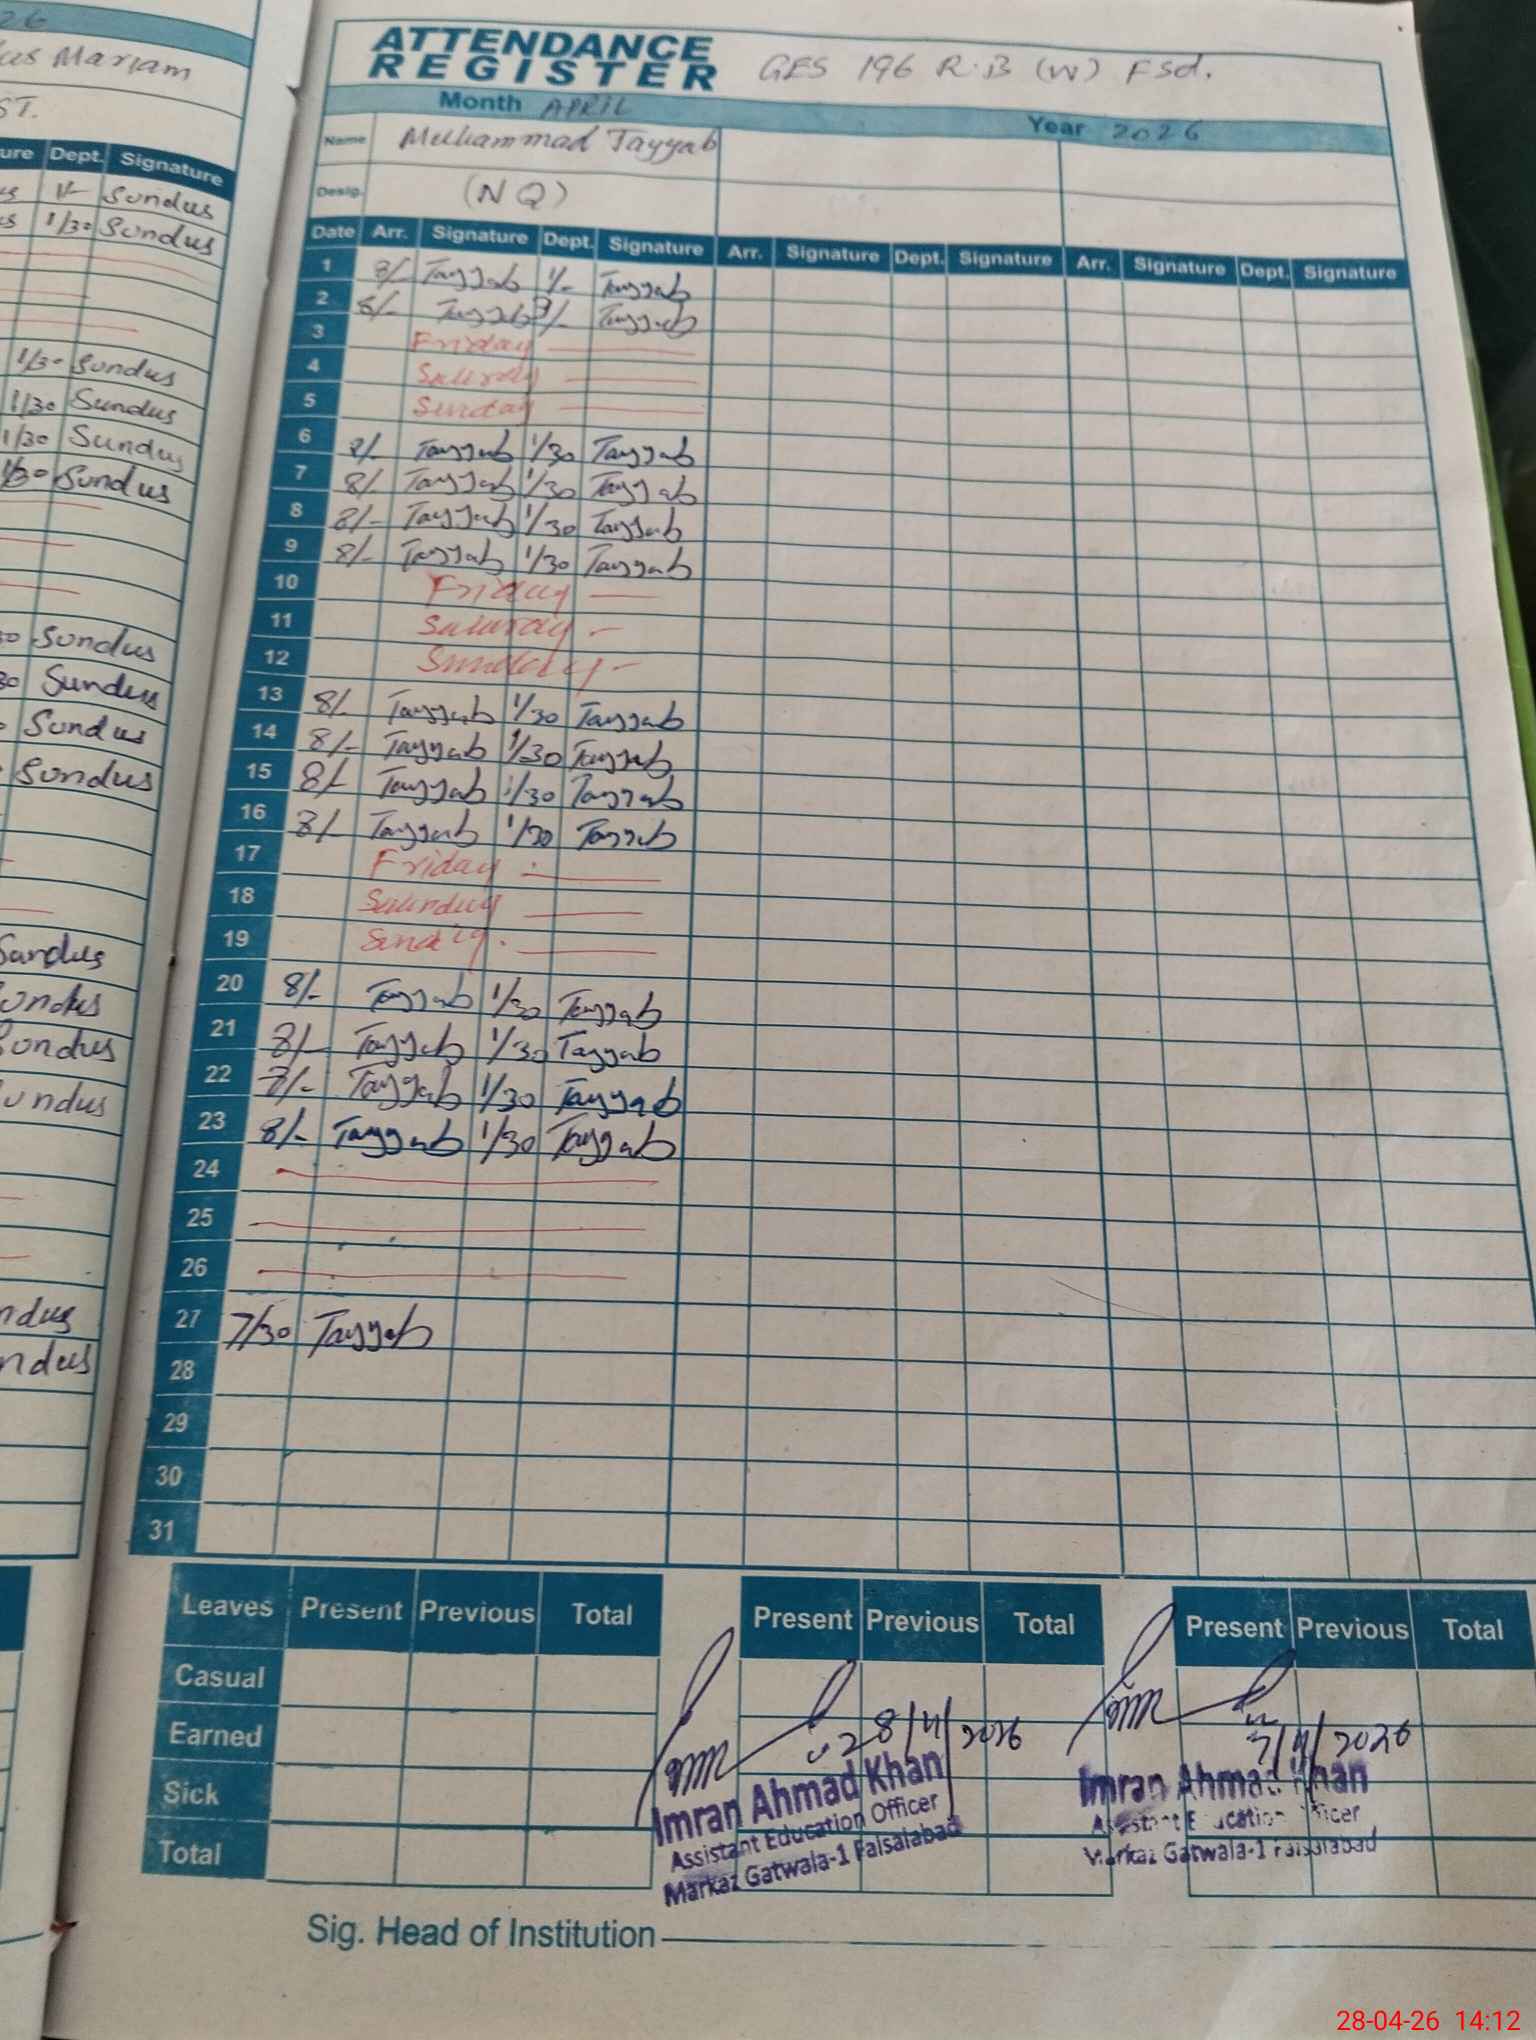 26
us Mariam
ST.
ure Dept. Signature
us 1/- Sundus
us 1/30 Sundus
1/30 Sundus
1/30 Sundus
1/30 Sundus
1/30 Sundus
30 Sundus
30 Sundus
Sundus
Sundus
Sundus
undus
Sundus
undus
ndus
ndus
ATTENDANCE
REGISTER GES 196 R.B (W) Fsd.
Month APRIL Year 2026
Name Muhammad Tayyab
Desig. (NQ)
Date Arr. Signature Dept. Signature Arr. Signature Dept. Signature Arr. Signature Dept. Signature
1 8/- Tayyab 1/- Tayyab
2 8/- Tayyab 1/- Tayyab
3 Friday
4 Saturday
5 Sunday
6 8/- Tayyab 1/30 Tayyab
7 8/- Tayyab 1/30 Tayyab
8 8/- Tayyab 1/30 Tayyab
9 8/- Tayyab 1/30 Tayyab
10 Friday
11 Saturday
12 Sunday
13 8/- Tayyab 1/30 Tayyab
14 8/- Tayyab 1/30 Tayyab
15 8/- Tayyab 1/30 Tayyab
16 8/- Tayyab 1/30 Tayyab
17 Friday
18 Saturday
19 Sunday
20 8/- Tayyab 1/30 Tayyab
21 8/- Tayyab 1/30 Tayyab
22 8/- Tayyab 1/30 Tayyab
23 8/- Tayyab 1/30 Tayyab
24
25
26
27 7/30 Tayyab
28
29
30
31
Leaves Present Previous Total Present Previous Total Present Previous Total
Casual
Earned
Sick
Total
28/4/2026
Imran Ahmad Khan
Assistant Education Officer
Markaz Gatwala-1 Faisalabad
7/4/2026
Imran Ahmad Khan
Assistant Education Officer
Markaz Gatwala-1 Faisalabad
Sig. Head of Institution
28-04-26 14:12